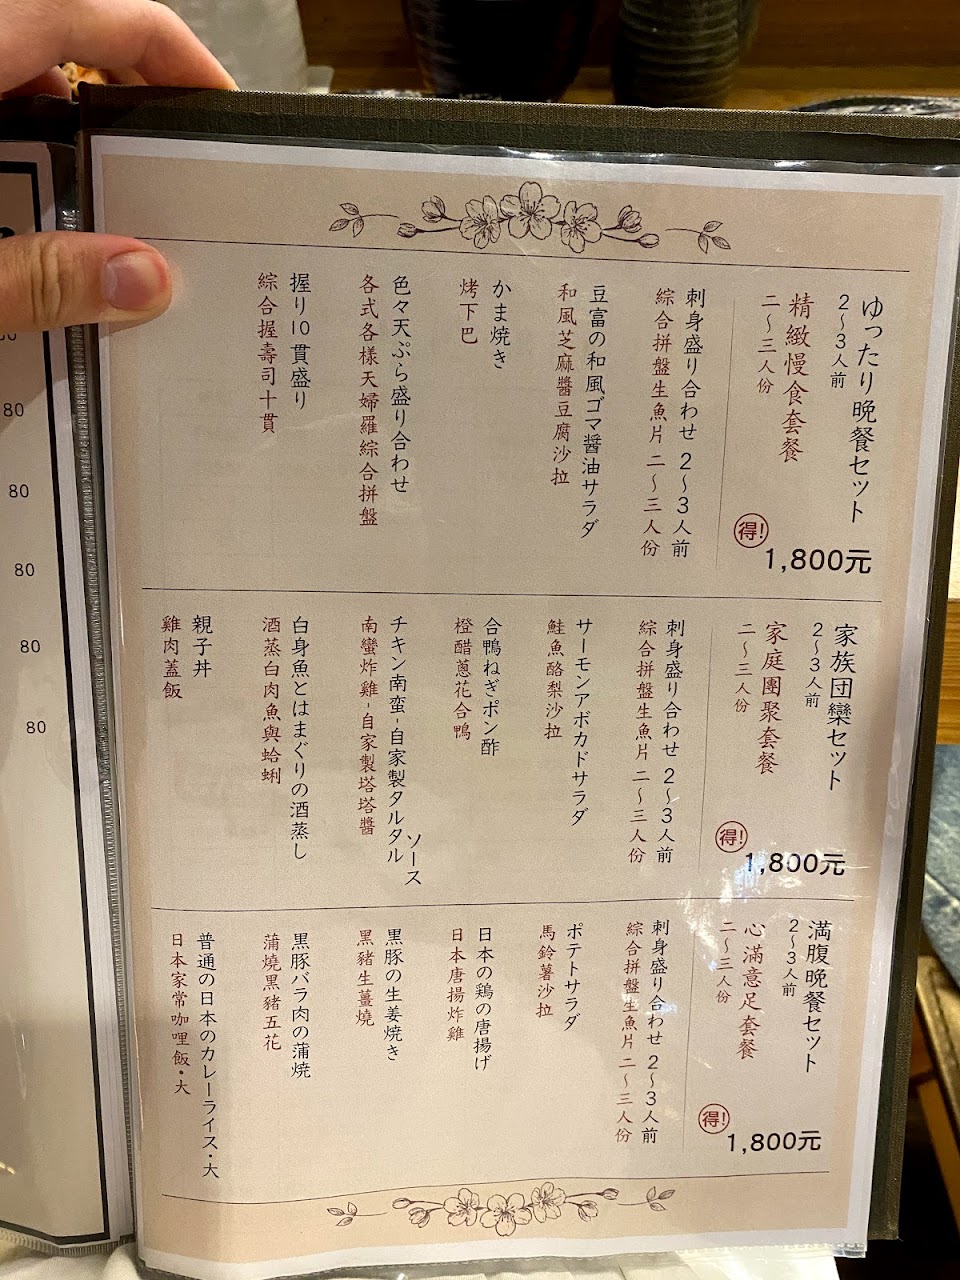 ゆったり晩餐セット
2～3人前
精緻慢食套餐
二～三人份
得!
1,800元
刺身盛り合わせ 2～3人前
綜合拼盤生魚片 二～三人份
豆富の和風ゴマ醤油サラダ
和風芝麻醬豆腐沙拉
かま焼き
烤下巴
色々天ぷら盛り合わせ
各式各樣天婦羅綜合拼盤
握り10貫盛り
綜合握壽司十貫
家族団欒セット
2～3人前
家庭團聚套餐
二～三人份
得!
1,800元
刺身盛り合わせ 2～3人前
綜合拼盤生魚片 二～三人份
サーモンアボカドサラダ
鮭魚酪梨沙拉
合鴨ねぎポン酢
橙醋蔥花合鴨
チキン南蛮-自家製タルタルソース
南蠻炸雞-自家製塔塔醬
白身魚とはまぐりの酒蒸し
酒蒸白肉魚與蛤蜊
親子丼
雞肉蓋飯
満腹晩餐セット
2～3人前
心滿意足套餐
二～三人份
得!
1,800元
刺身盛り合わせ 2～3人前
綜合拼盤生魚片 二～三人份
ポテトサラダ
馬鈴薯沙拉
日本の鶏の唐揚げ
日本唐揚炸雞
黒豚の生姜焼き
黑豬生薑燒
黒豚バラ肉の蒲焼
蒲燒黑豬五花
普通の日本のカレーライス・大
日本家常咖哩飯・大
80
80
80
80
80